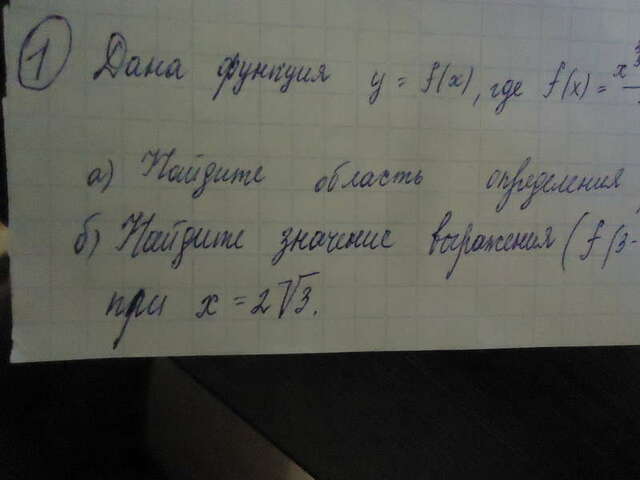 1 Дана функция y = f(x), где f(x) = x
а) Найдите область определения
б) Найдите значение выражения (f(3-
при x = 2√3.